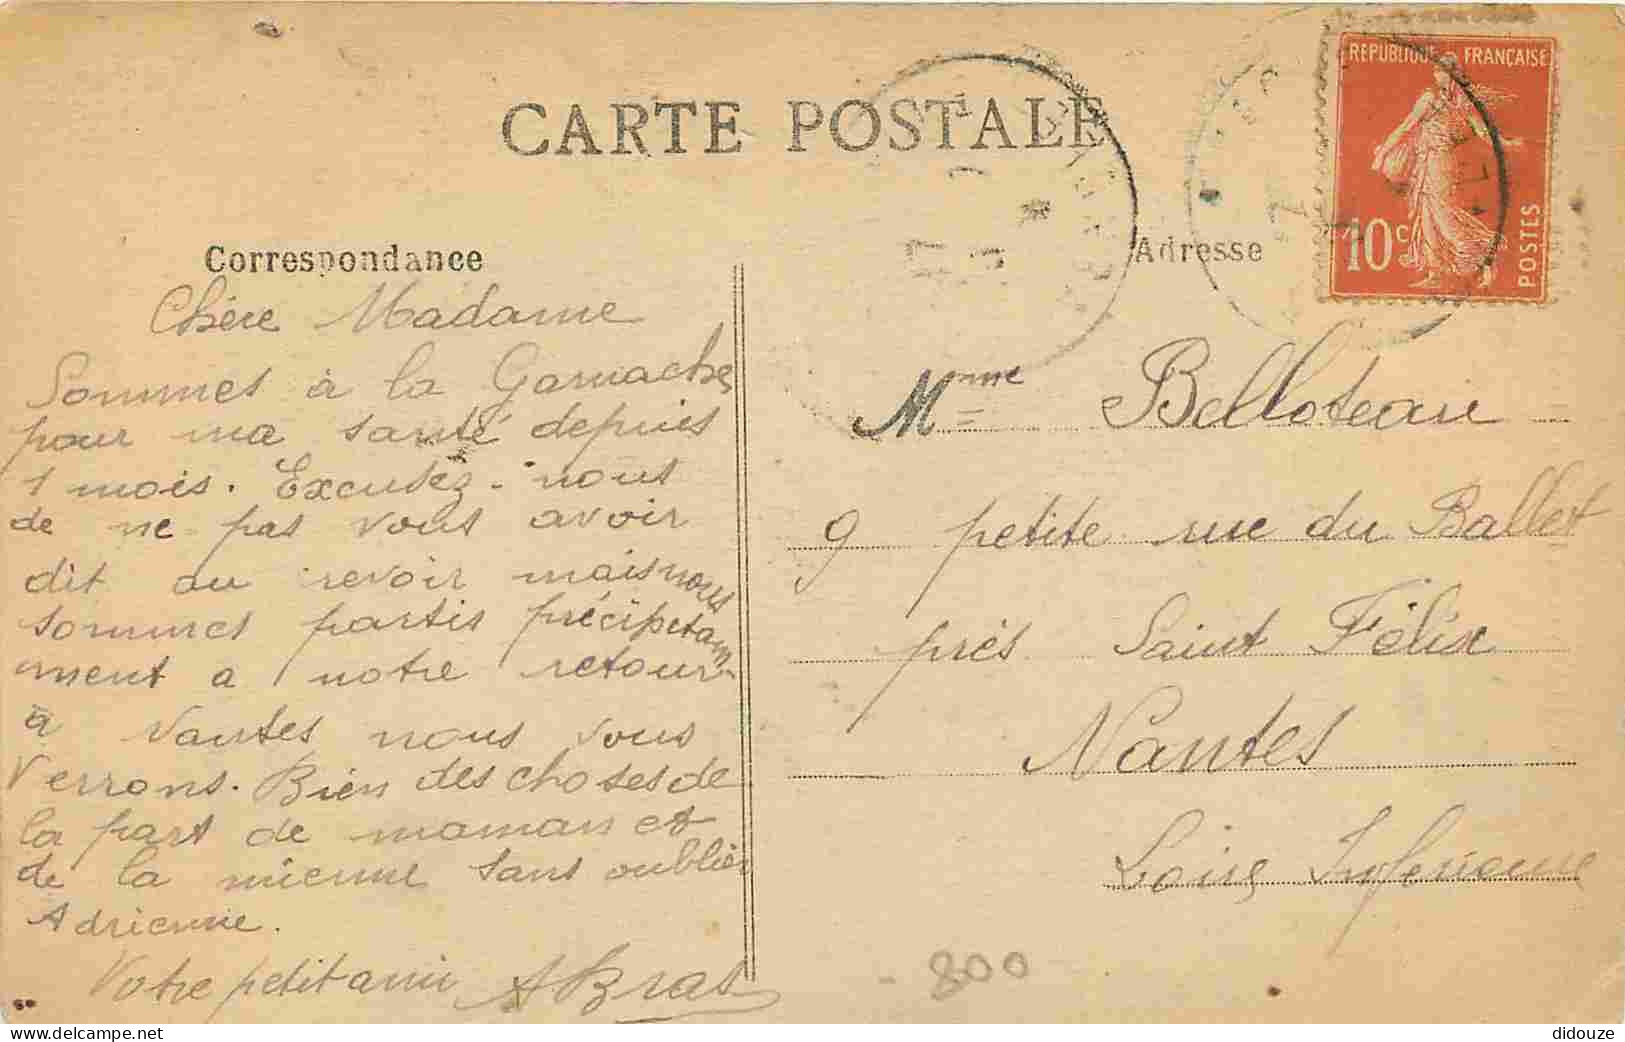 CARTE POSTALE
REPUBLIQUE FRANÇAISE
10c
POSTES
Correspondance
Adresse
Chère Madame
Sommes à la Garnache
pour ma santé depuis
1 mois. Excusez-nous
de ne pas vous avoir
dit au revoir mais nous
sommes partis précipetam
ment a notre retour
à Nantes nous vous
Verrons. Bien des choses de
la part de maman et
de la mienne sans oublier
Adrienne.
Votre petit ami ABras
Mme Belloteau
9 petite rue du Ballet
près Saint Félix
Nantes
Loire Inferieure
- 800
didouze